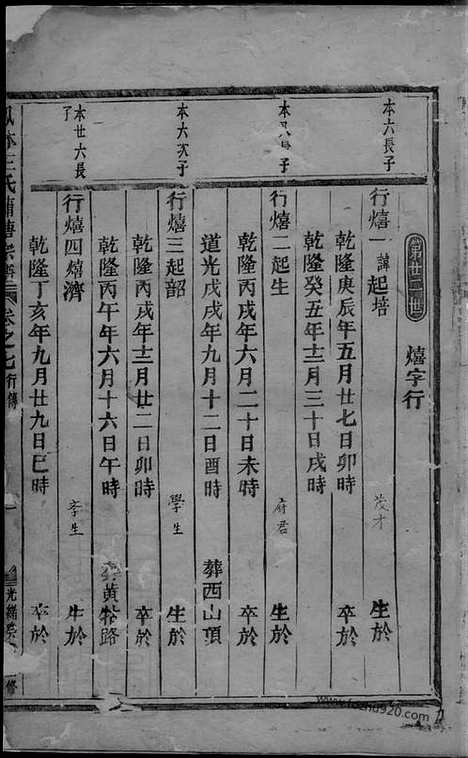 第廿二世
熺字行
本六長子
行熺一諱起培
茂才
生於
乾隆庚辰年五月廿七日卯時
卒於
乾隆癸丑年十二月三十日戌時
子
行熺二起生
府君
生於
乾隆丙戌年六月二十日未時
卒於
道光戊戌年九月十二日酉時
葬西山頂
本六次子
行熺三起韶
學生
生於
乾隆丙戌年十二月廿二日卯時
卒於
乾隆丙午年六月十六日午時
葬黃牯路
本廿六長子
行熺四熺濟
孝生
生於
乾隆丁亥年九月廿九日巳時
卒於
林王氏蒲塘宗譜
卷之七行傳
光緒
修
www.fozhu920.com